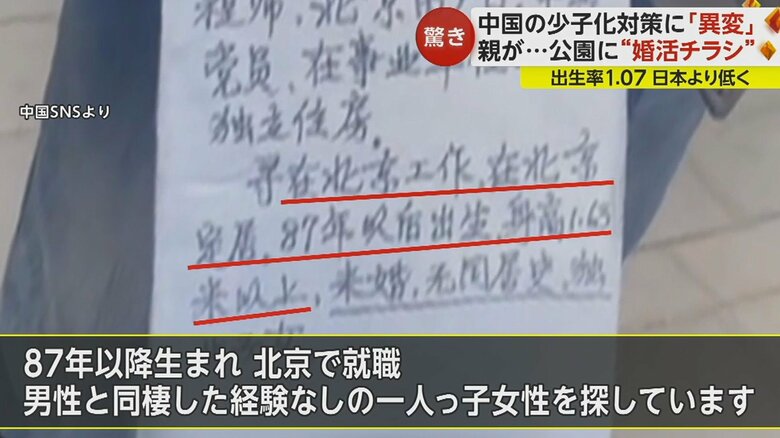 驚き
中国の少子化対策に「異変」
親が…公園に“婚活チラシ”
出生率1.07 日本より低く
中国SNSより
程师,北京
党员,在事业单位
独立住房。
寻在北京工作,在北京
定居,87年以后出生,身高1.65
米以上,未婚,无同居史,独
87年以降生まれ 北京で就職
男性と同棲した経験なしの一人っ子女性を探しています